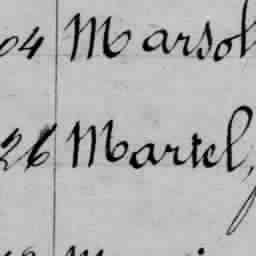 04 Marsol
26 Martel,